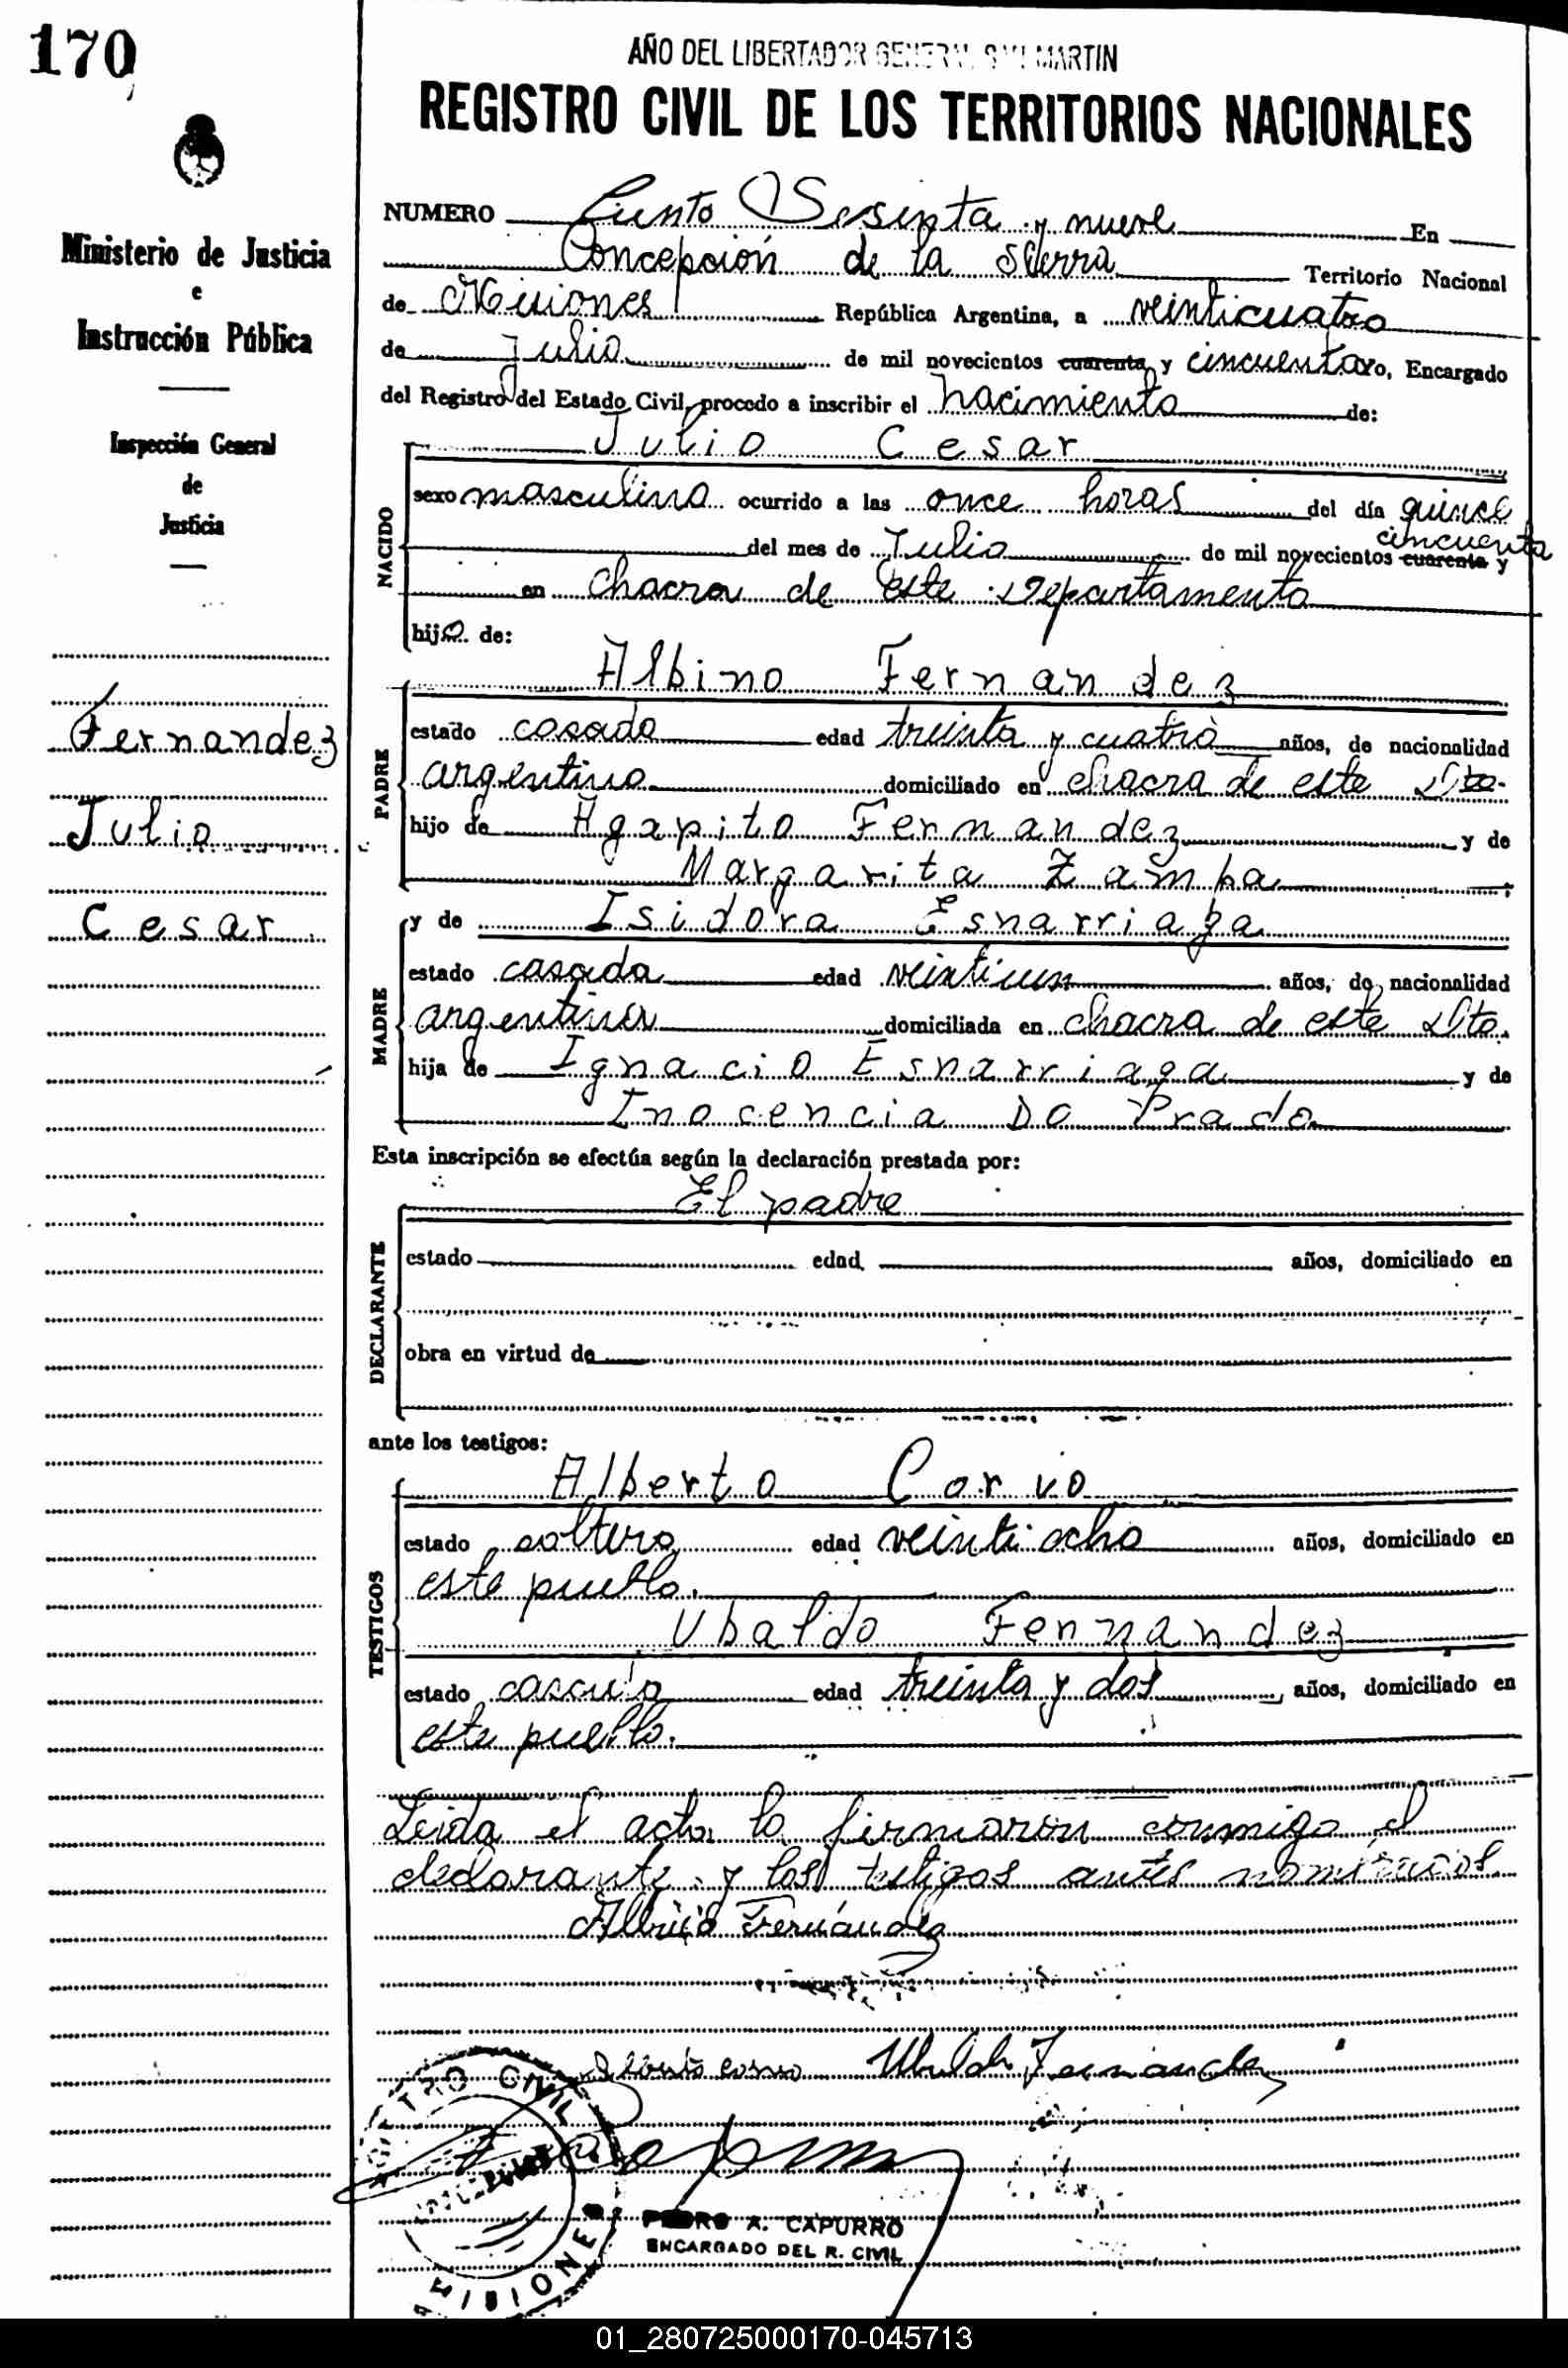 170
AÑO DEL LIBERTADOR GENERAL SAN MARTIN
REGISTRO CIVIL DE LOS TERRITORIOS NACIONALES
Ministerio de Justicia
e
Instrucción Pública
Inspección General
de
Justicia
Fernandez
Julio
Cesar
NUMERO Ciento Sesenta y nueve En
Concepción de la Sierra Territorio Nacional
de Misiones República Argentina, a veinticuatro
de Julio de mil novecientos cuarenta y cincuenta yo, Encargado
del Registro del Estado Civil, procedo a inscribir el nacimiento de:
NACIDO
Julio Cesar
sexo masculino ocurrido a las once horas del día quince
cincuenta
del mes de Julio de mil novecientos cuarenta y
en chacra de este Departamento
hijo de:
PADRE
Albino Fernandez
estado casado edad treinta y cuatro años, de nacionalidad
argentino domiciliado en chacra de este Dto.
hijo de Agapito Fernandez y de
Margarita Zampa;
MADRE
y de Isidora Esnarriaga
estado casada edad veintiun años, de nacionalidad
argentina domiciliada en chacra de este Dto.
hija de Ignacio Esnarriaga y de
Inocencia Do Prado
Esta inscripción se efectúa según la declaración prestada por:
DECLARANTE
El padre
estado edad años, domiciliado en
obra en virtud de
ante los testigos:
TESTIGOS
Alberto Corvo
estado soltero edad veintiocho años, domiciliado en
este pueblo.
Ubaldo Fernandez
estado casado edad treinta y dos años, domiciliado en
este pueblo.
Leida el acta la firmaron conmigo el
declarante y los testigos antes nombrados
Albino Fernández
Alberto Corvo Ubaldo Fernandez
REGISTRO CIVIL
MISIONES
PEDRO A. CAPURRO
ENCARGADO DEL R. CIVIL
01_280725000170-045713